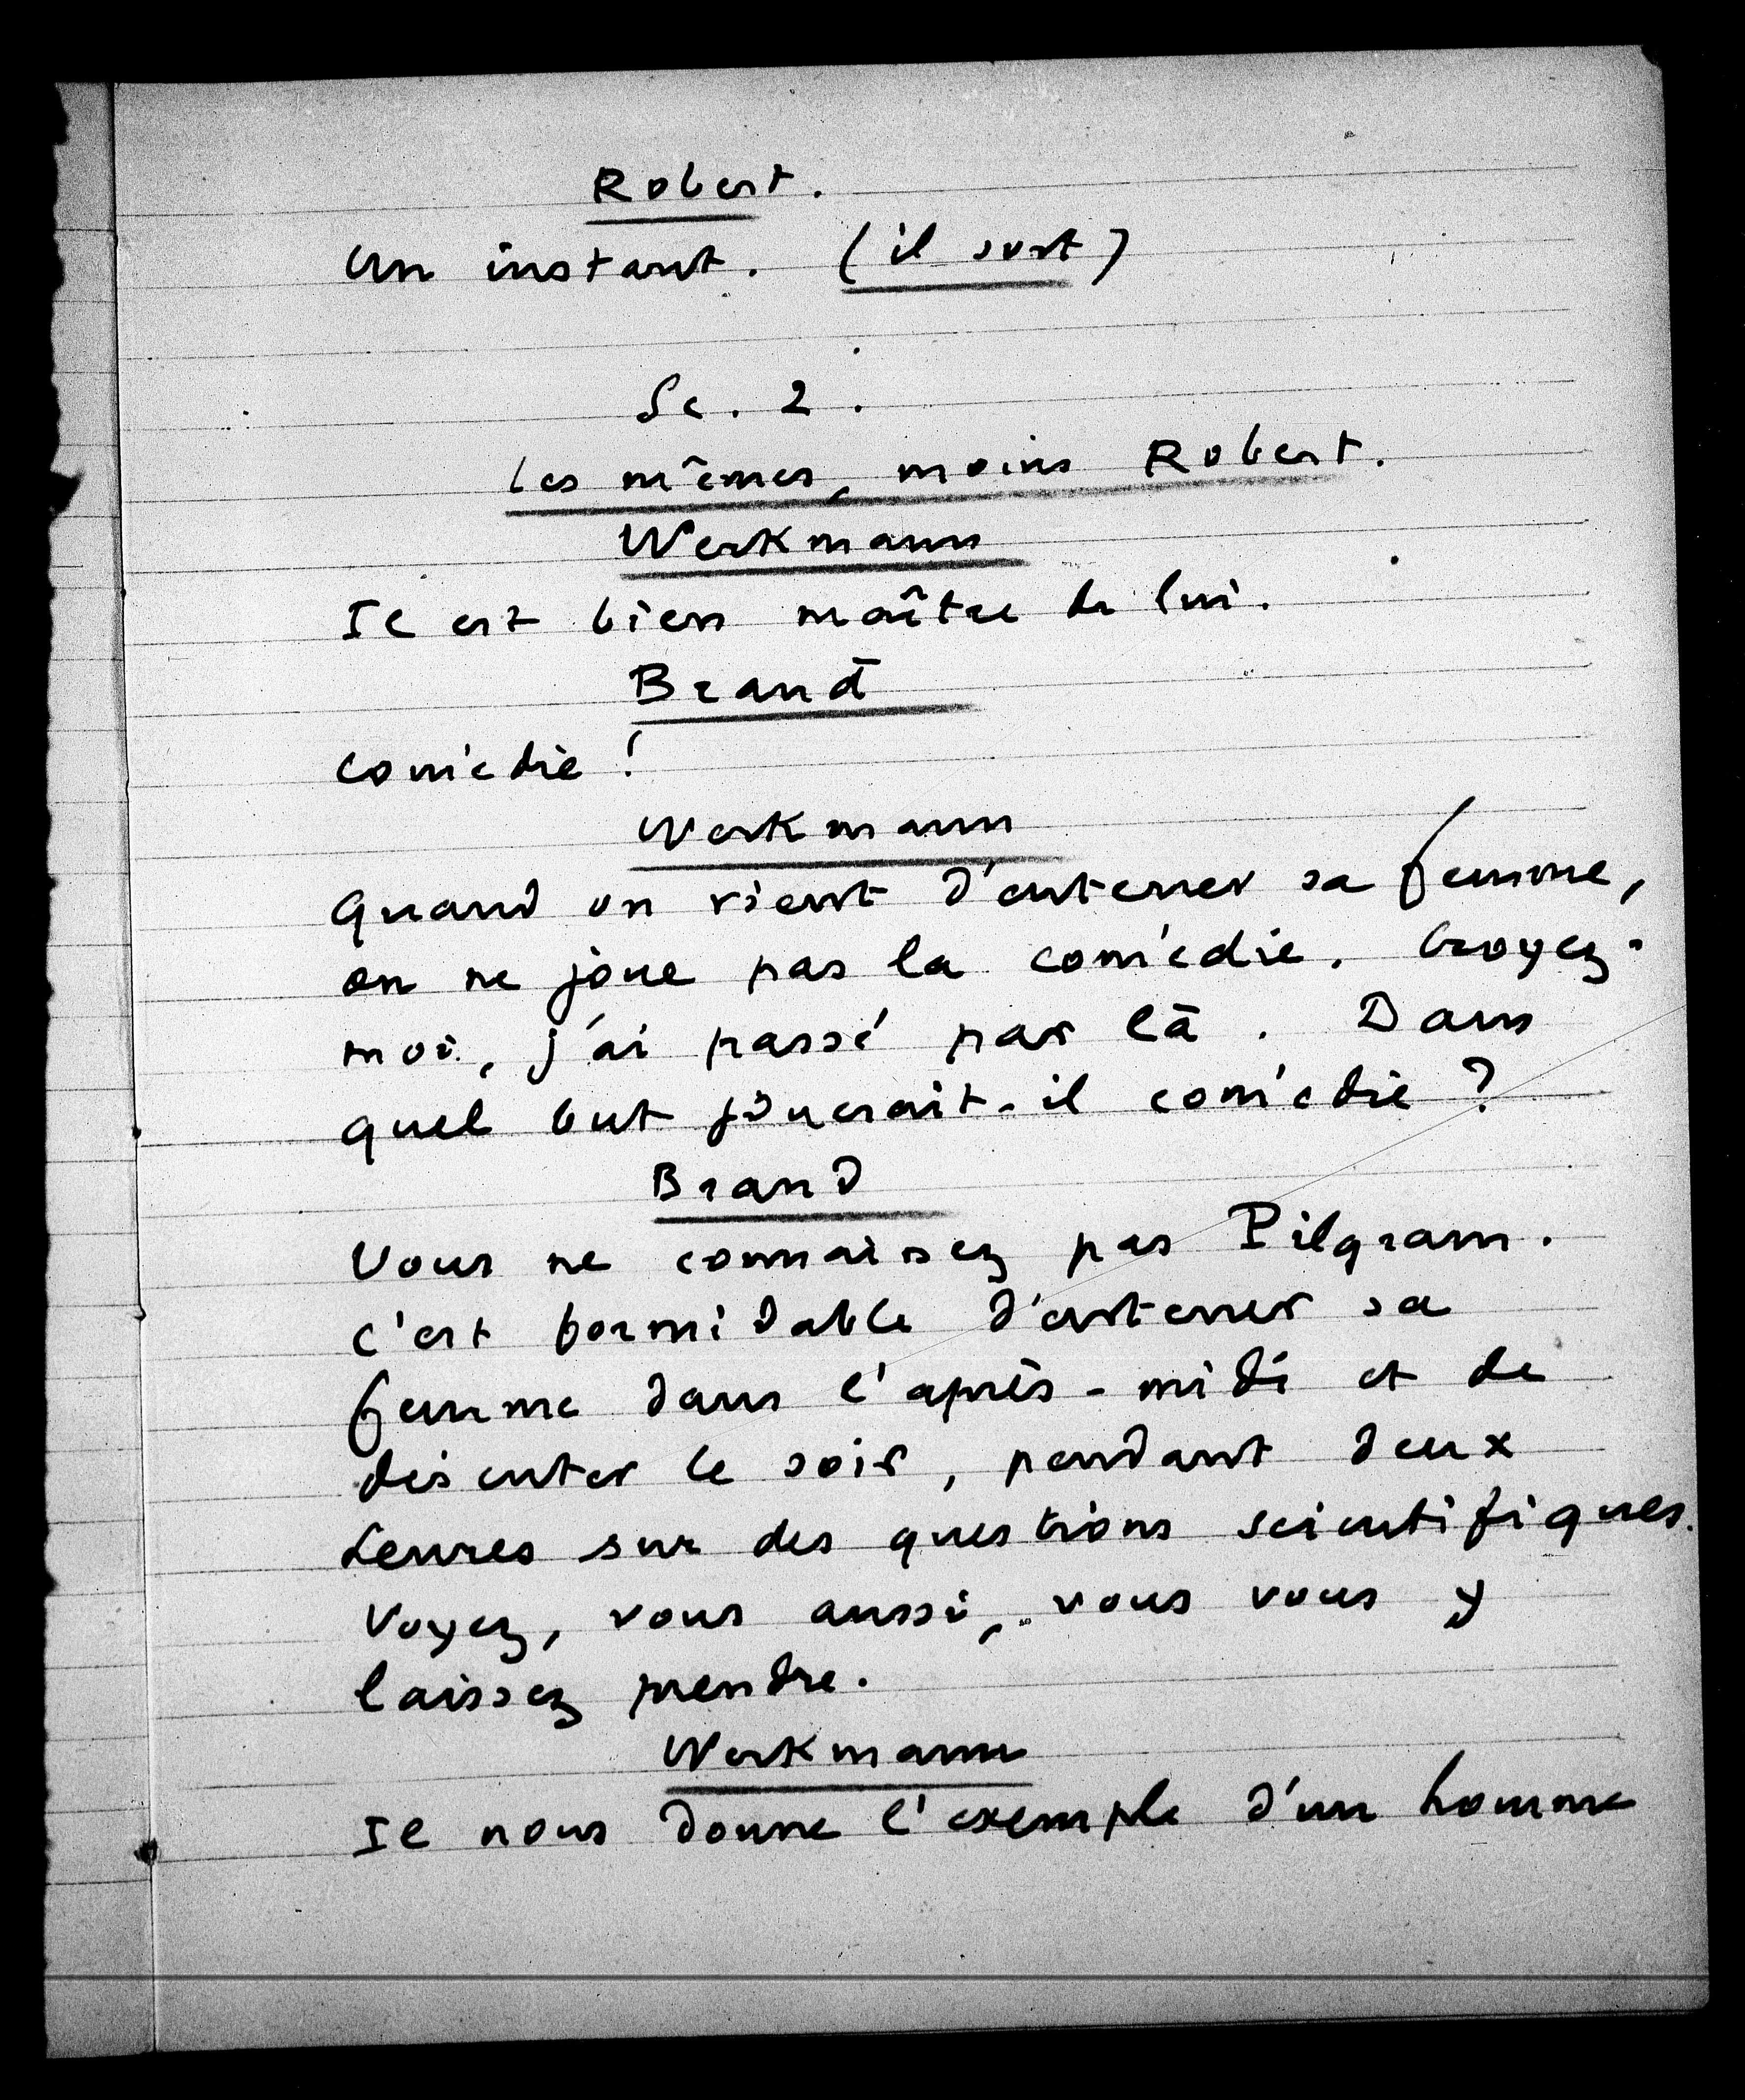 Robert.
Un instant. (il sort)
Sc. 2.
Les mêmes, moins Robert.
Werkmann
Il est bien maître de lui.
Brand
Comédie !
Werkmann
Quand on vient d'enterrer sa femme,
on ne joue pas la comédie. Croyez-
moi, j'ai passé par là. Dans
quel but jouerait-il comédie ?
Brand
Vous ne connaissez pas Pilgram.
C'est formidable d'enterrer sa
femme dans l'après-midi et de
discuter le soir, pendant deux
heures sur des questions scientifiques.
Voyez, vous aussi, vous vous y
laissez prendre.
Werkmann
Il nous donne l'exemple d'un homme